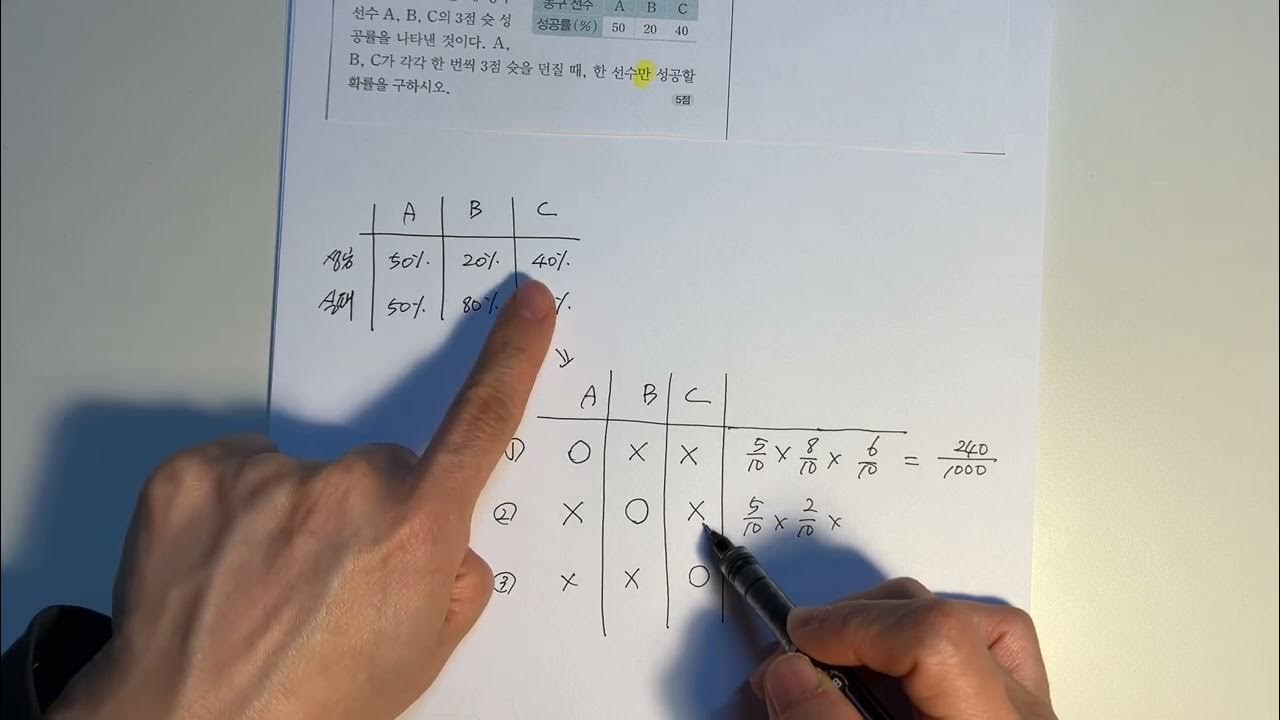 농구 선수 A B C
선수 A, B, C의 3점 슛 성
성공률(%) 50 20 40
공률을 나타낸 것이다. A,
B, C가 각각 한 번씩 3점 슛을 던질 때, 한 선수만 성공할
확률을 구하시오.
5점
A B C
성공 50% 20% 40%
실패 50% 80% %
A B C
① O X X 5/10 × 8/10 × 6/10 = 240/1000
② X O X 5/10 × 2/10 ×
③ X X O